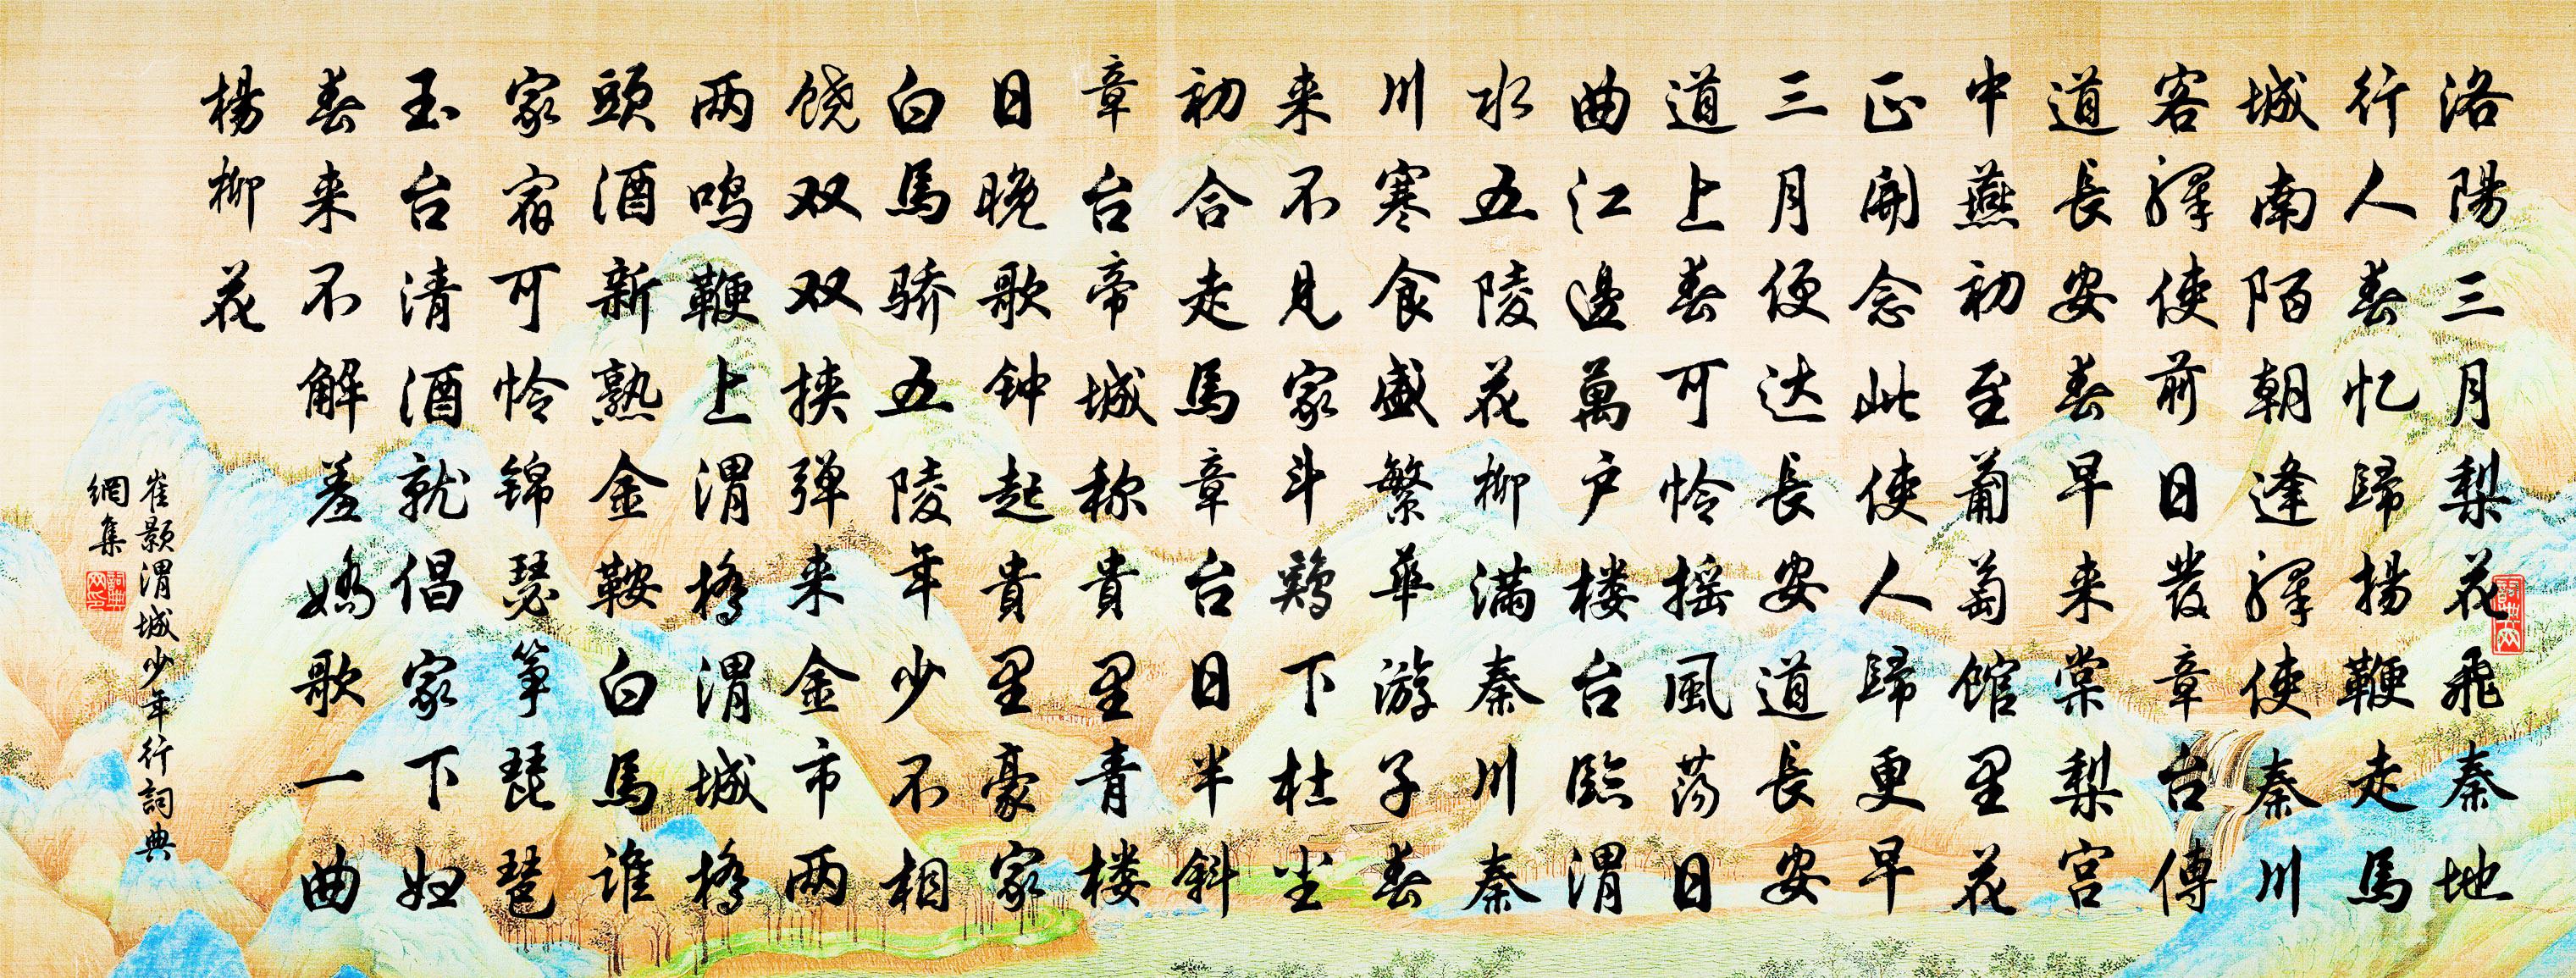 洛陽三月梨花飛秦地
行人春忆歸揚鞭走馬
城南陌朝逢驛使秦川
客驛使前日發章台傳
道長安春早来棠梨宫
中燕初至葡萄馆里花
正開念此使人歸更早
三月便达長安道長安
道上春可怜摇風荡日
曲江邊萬户楼台臨渭
水五陵花柳满秦川秦
川寒食盛繁華游子春
来不見家斗鷄下杜尘
初合走馬章台日半斜
章台帝城称貴里青楼
日晚歌钟起貴里豪家
白馬骄五陵年少不相
饶双双挟弹来金市两
两鸣鞭上渭橋渭城橋
頭酒新熟金鞍白馬谁
家宿可怜锦瑟筝琵琶
玉台清酒就倡家下妇
春来不解羞嬌歌一曲
楊柳花
崔颢渭城少年行詞典
網集